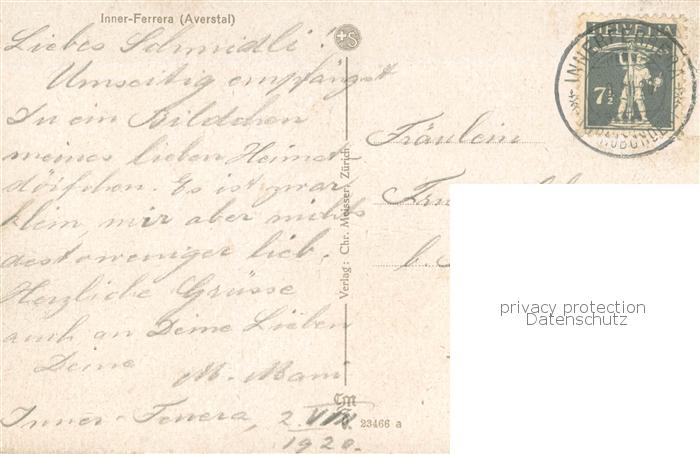 Inner-Ferrera (Averstal)
Liebes Schmidli!
Umseitig empfangst
Du ein Bildchen
meines lieben Heimat-
dörfchen. Es ist zwar
klein, mir aber nichts
destoweniger lieb.
Herzliche Grüsse
auch an Deine Lieben
Deine
M. Mani
Inner-Ferrera, 2. VIII
1920.
Verlag: Chr. Meisser, Zürich
23466 a
HELVETIA
7½
Fräulein
b.
privacy protection
Datenschutz